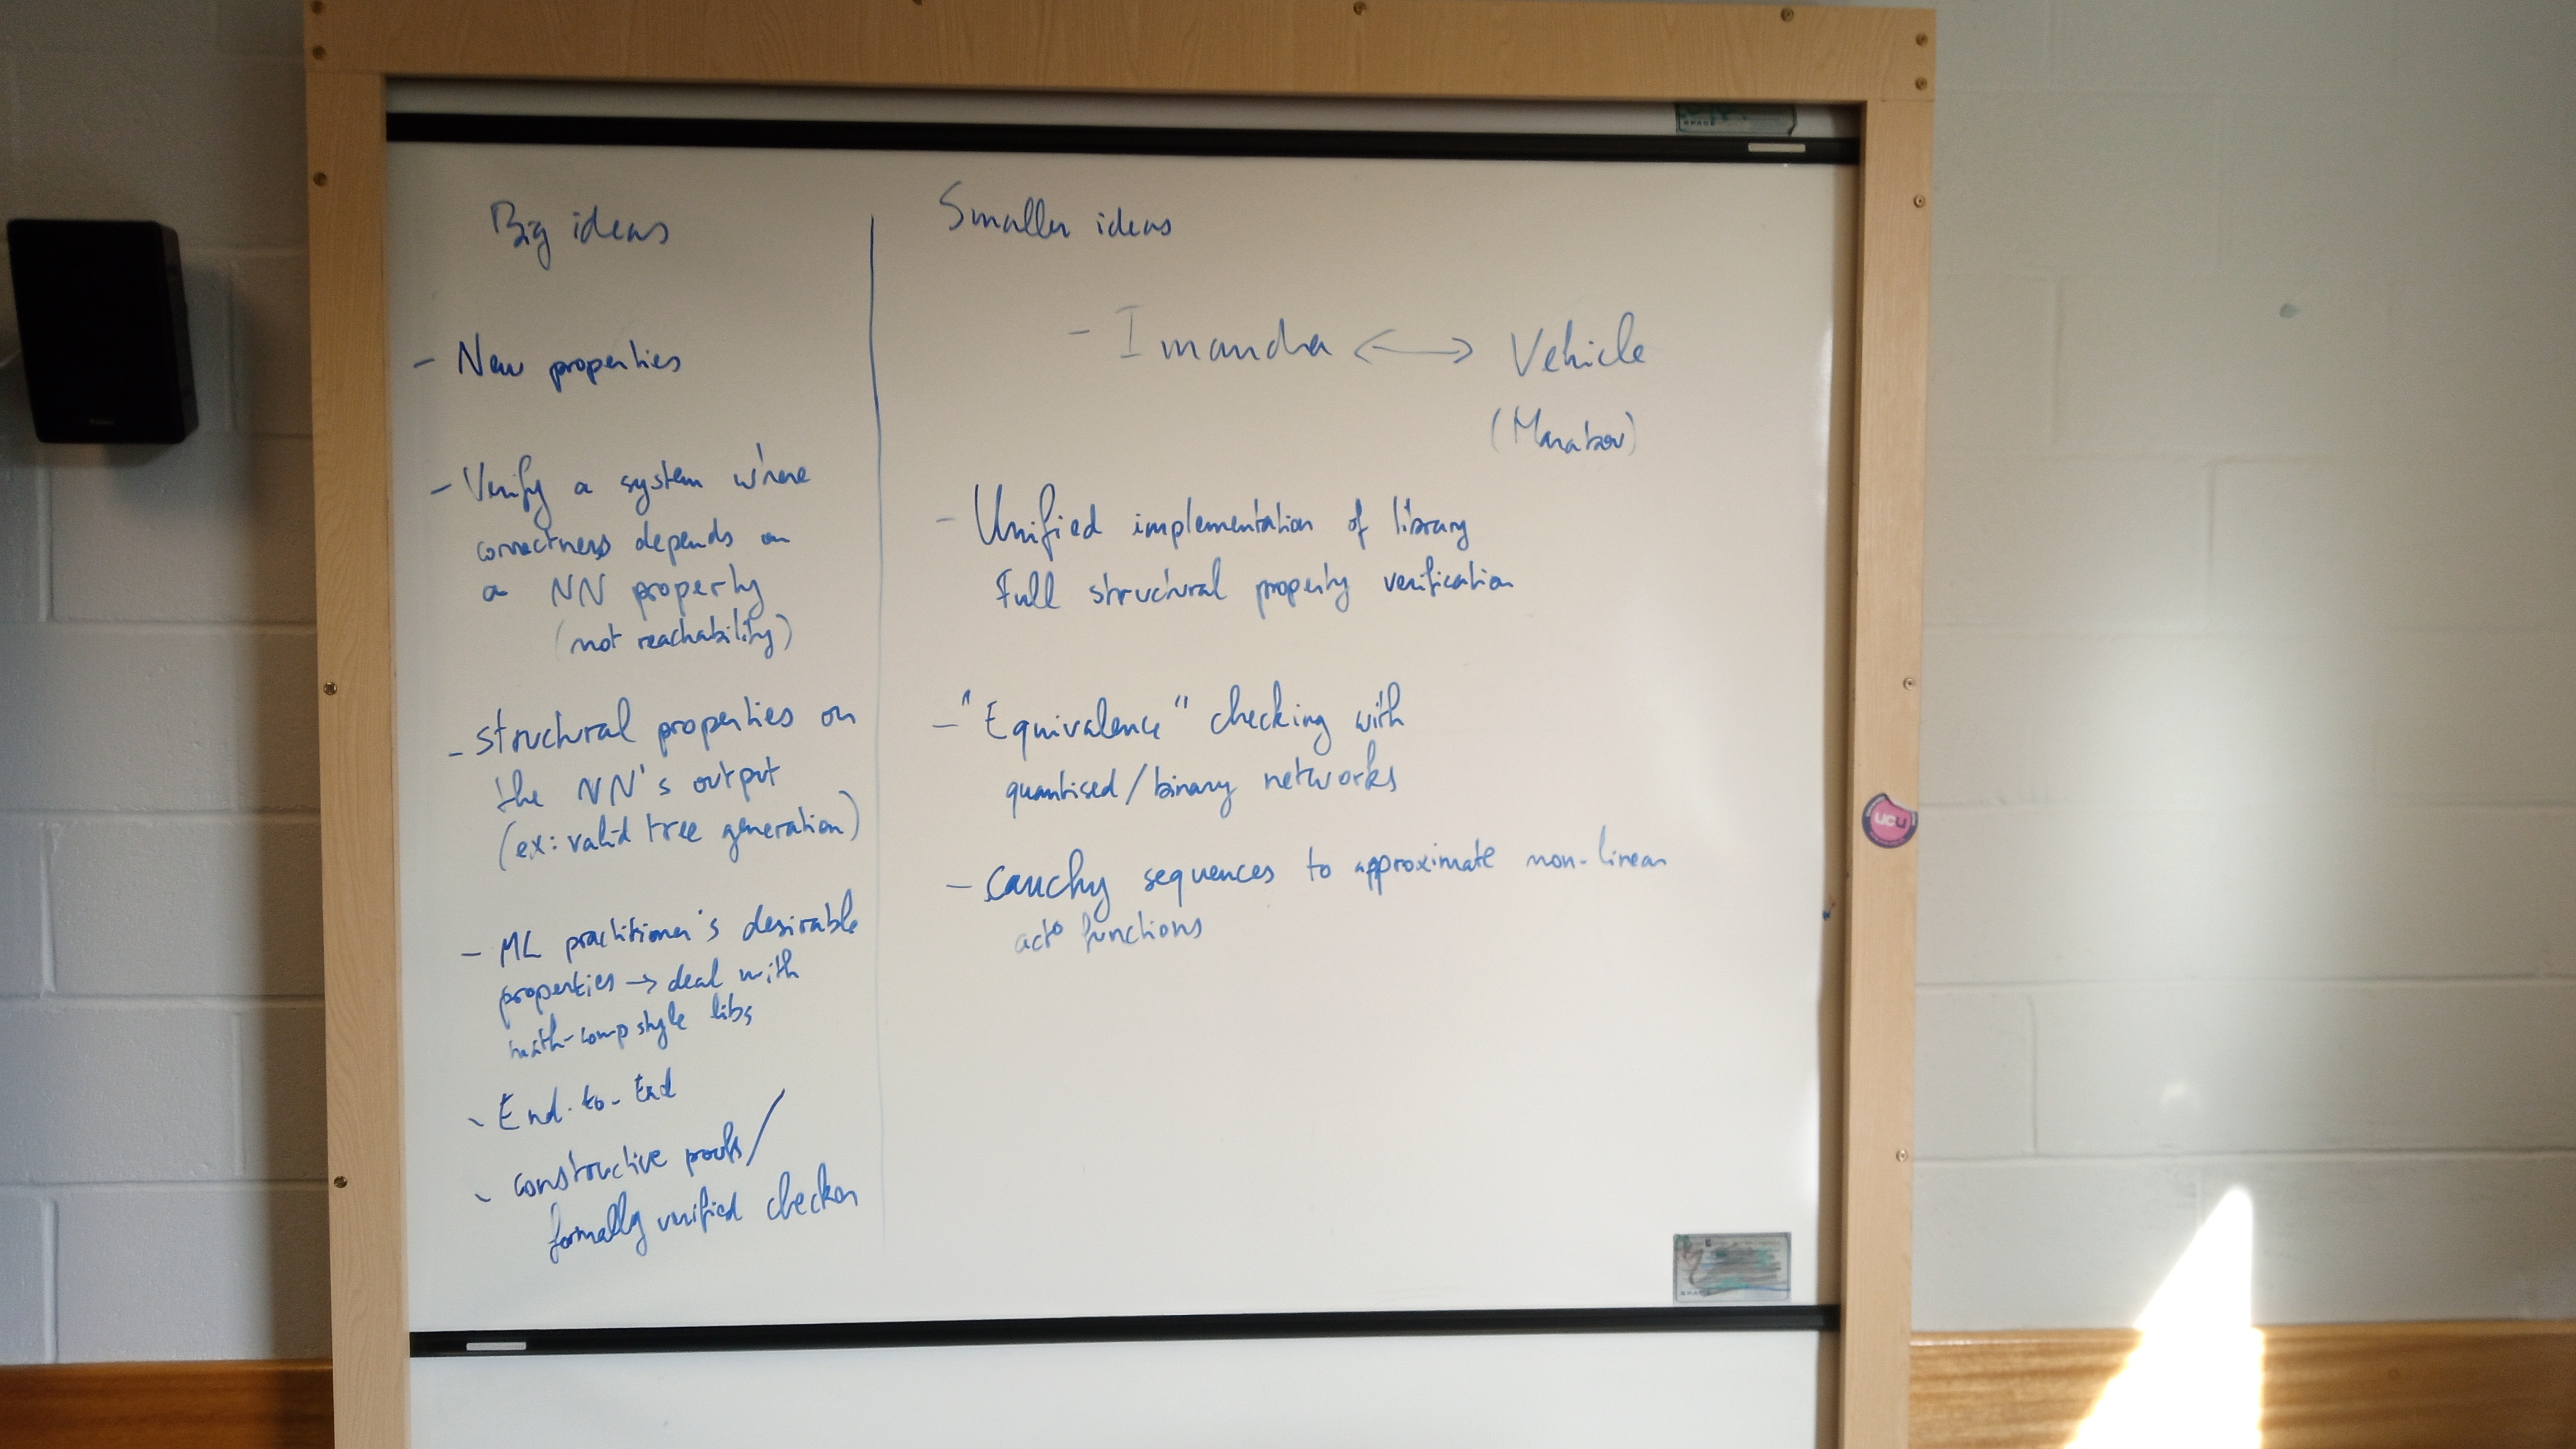 Big ideas
- New properties
- Verify a system where
correctness depends on
a NN property
(not reachability)
- structural properties on
the NN's output
(ex: valid tree generation)
- ML practitioner's desirable
properties → deal with
math-comp style libs
- End-to-End
- constructive proofs/
formally verified checker
Smaller ideas
- Imandra <-> Vehicle
(Marabou)
- Unified implementation of library
Full structural property verification
- "Equivalence" checking with
quantised/binary networks
- Cauchy sequences to approximate non-linear
act° functions
UCU
SPACE